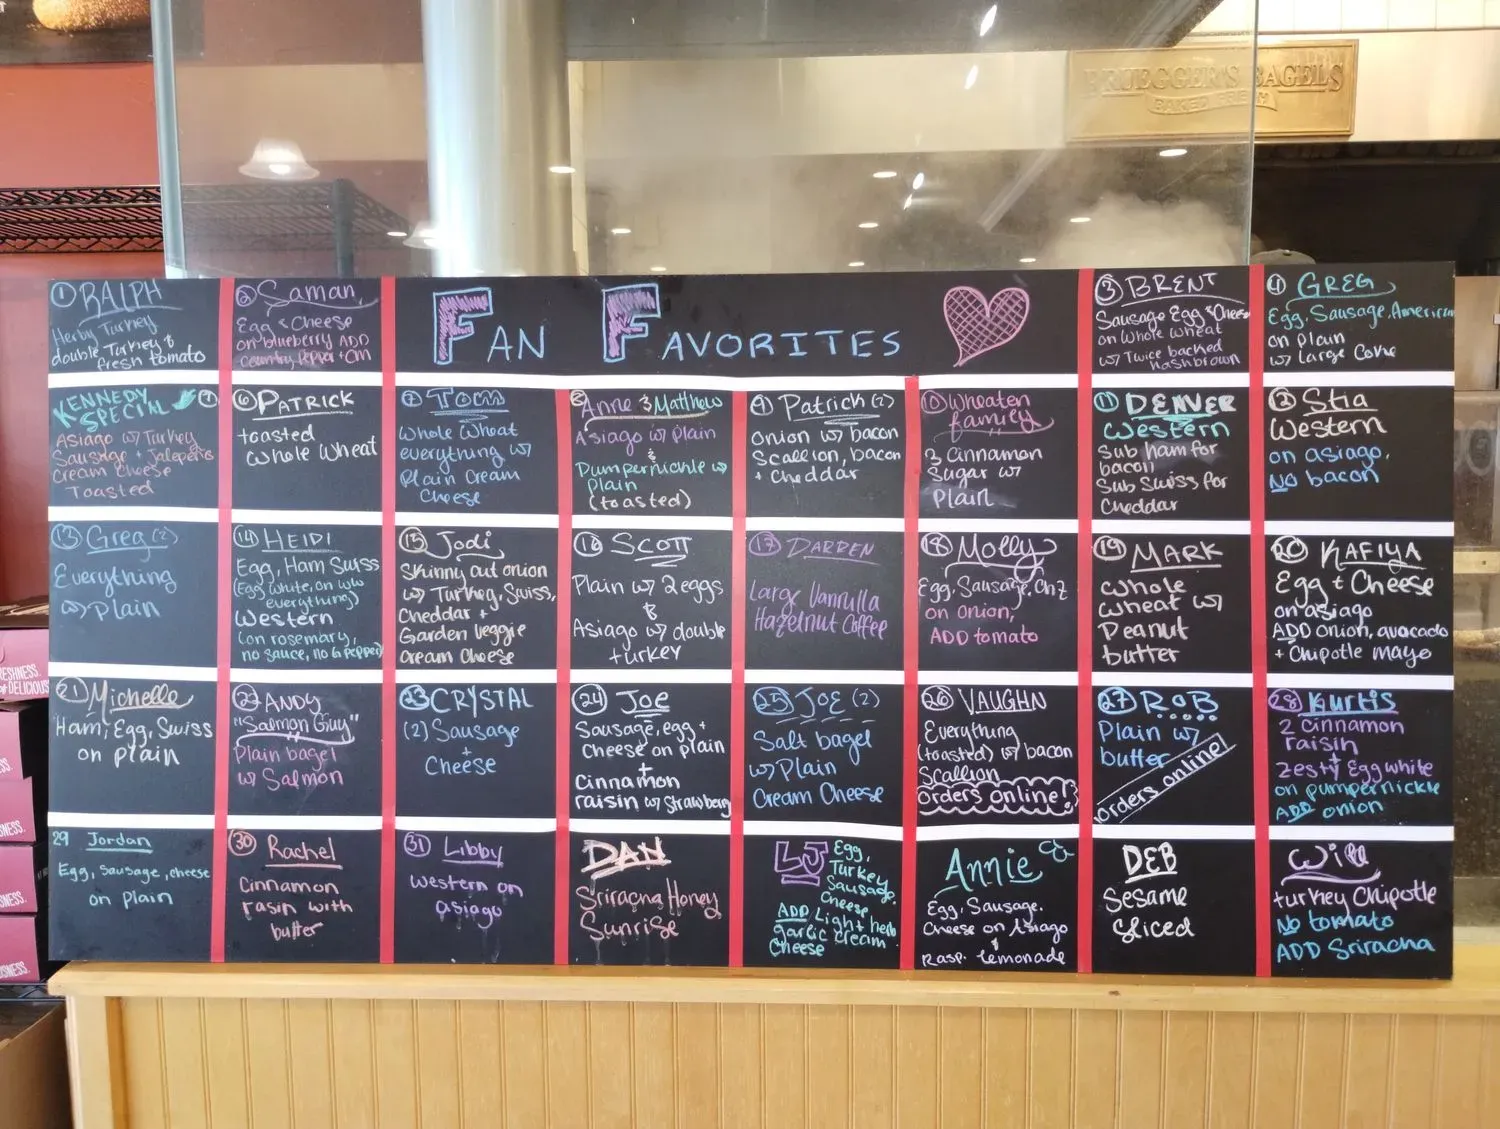 BRUEGGER'S BAGELS
BAKED FRESH
FAN FAVORITES
① RALPH
Herby Turkey
double Turkey &
fresh tomato
② Saman
Egg & Cheese
on blueberry ADD
country pepper + om
③ BRENT
Sausage Egg & Cheese
on whole wheat
w/ Twice backed
hashbrown
④ GREG
Egg, Sausage, American
on plain
w/ Large Coke
KENNEDY
SPECIAL
Asiago w/ Turkey
Sausage + Jalepeño
cream cheese
Toasted
⑥ PATRICK
toasted
whole wheat
⑦ Tom
Whole Wheat
everything w/
Plain Cream
Cheese
⑧ Anne & Matthew
Asiago w/ plain
&
Pumpernickle w/
Plain
(toasted)
⑨ Patrick (2)
Onion w/ bacon
Scallion, bacon
+ cheddar
⑩ Wheaten
family
3 Cinnamon
Sugar w/
Plain
⑪ DENVER
Western
Sub ham for
bacon
Sub Swiss for
Cheddar
⑫ Stia
Western
on asiago,
No bacon
⑬ Greg (2)
Everything
w/ plain
⑭ HEIDI
Egg, Ham Swiss
(Egg white, on ww
everything)
Western
(on rosemary,
no sauce, no G pepper)
⑮ Jodi
Skinny out onion
w/ Turkey, Swiss,
Cheddar +
Garden veggie
Cream Cheese
⑯ SCOTT
Plain w/ 2 eggs
&
Asiago w/ double
turkey
⑰ DARDEN
Large Vannulla
Hazelnut Coffee
⑱ Molly
Egg, Sausage, Chz
on onion,
ADD tomato
⑲ MARK
Whole
wheat w/
Peanut
butter
⑳ KAFIYA
Egg + Cheese
on asiago
ADD onion, avocado
+ Chipotle mayo
㉑ Michelle
Ham, Egg, Swiss
on plain
㉒ ANDY
"Salmon Guy"
Plain bagel
w/ Salmon
㉓ CRYSTAL
(2) Sausage
+
Cheese
㉔ JOE
Sausage, egg +
Cheese on plain
+
Cinnamon
raisin w/ Strawberry
㉕ JOE (2)
Salt bagel
w/ Plain
Cream Cheese
㉖ VAUGHN
Everything
(toasted) w/ bacon
Scallion
orders online!
㉗ ROB
Plain w/
butter
orders online!
㉘ Kurtis
2 cinnamon
raisin
+
Zesty Egg white
on pumpernickle
ADD onion
29 Jordan
Egg, Sausage, cheese
on plain
㉚ Rachel
Cinnamon
rasin with
butter
㉛ Libby
Western on
asiago
DAN
Sriracha Honey
Sunrise
LJ
Egg,
Turkey
Sausage,
Cheese
ADD Light herb
garlic cream
Cheese
Annie
Egg, Sausage,
Cheese on Asiago
&
Rasp. Lemonade
DEB
Sesame
Sliced
Will
turkey Chipotle
No tomato
ADD Sriracha